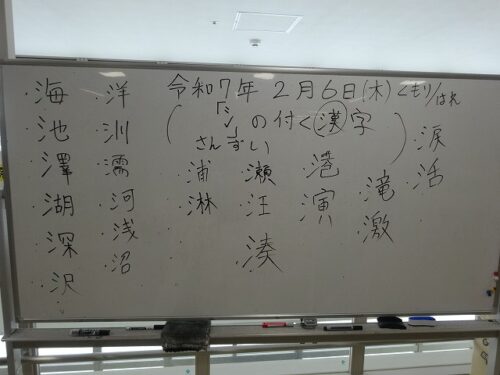 令和7年 2月6日(木)くもり/はれ
(「氵」の付く漢字)
さんずい
海
池
澤
湖
深
沢
洋
洲
濡
河
浅
沼
浦
淋
瀬
汪
湊
港
演
滝
激
涙
活